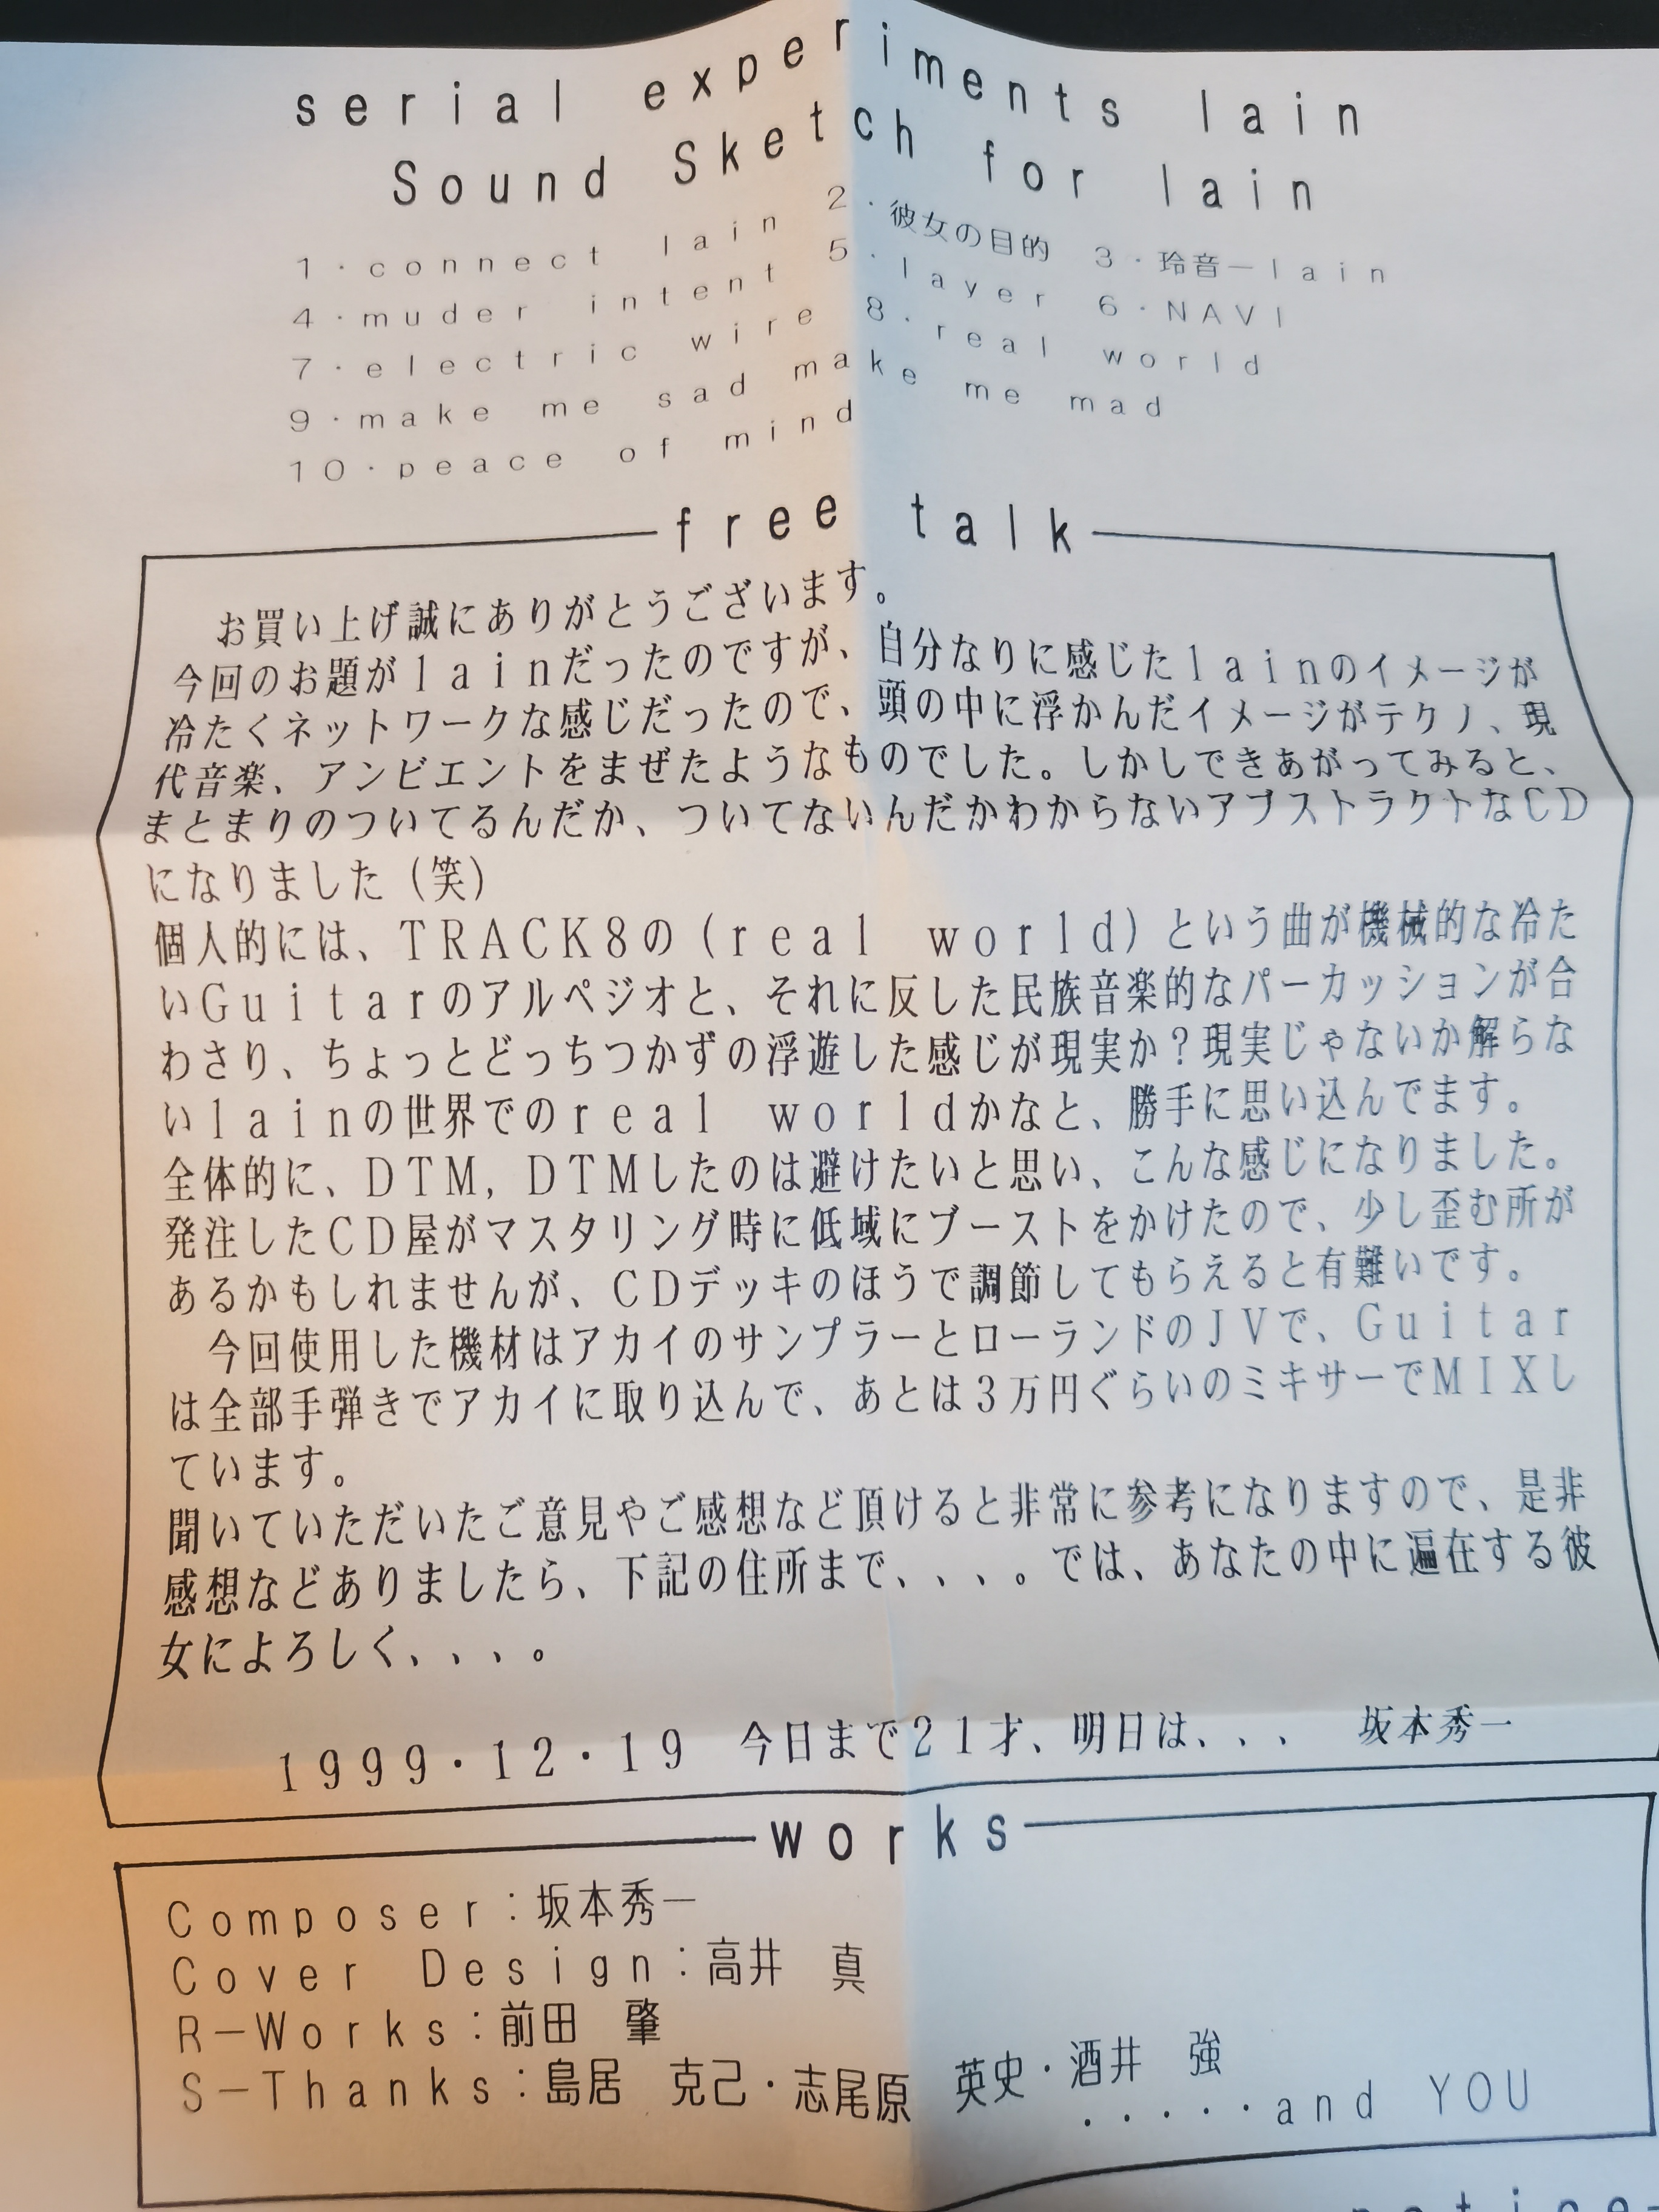 serial experiments lain
Sound Sketch for lain
1・connect lain 2・彼女の目的 3・玲音－lain
4・muder intent 5・layer 6・NAVI
7・electric wire 8・real world
9・make me sad make me mad
10・peace of mind
free talk
お買い上げ誠にありがとうございます。
今回のお題がlainだったのですが、自分なりに感じたlainのイメージが
冷たくネットワークな感じだったので、頭の中に浮かんだイメージがテクノ、現
代音楽、アンビエントをまぜたようなものでした。しかしできあがってみると、
まとまりのついてるんだか、ついてないんだかわからないアブストラクトなCD
になりました（笑）
個人的には、TRACK8の（real world）という曲が機械的な冷た
いGuitarのアルペジオと、それに反した民族音楽的なパーカッションが合
わさり、ちょっとどっちつかずの浮遊した感じが現実か？現実じゃないか解らな
いlainの世界でのreal worldかなと、勝手に思い込んでます。
全体的に、DTM，DTMしたのは避けたいと思い、こんな感じになりました。
発注したCD屋がマスタリング時に低域にブーストをかけたので、少し歪む所が
あるかもしれませんが、CDデッキのほうで調節してもらえると有難いです。
今回使用した機材はアカイのサンプラーとローランドのJVで、Guitar
は全部手弾きでアカイに取り込んで、あとは3万円ぐらいのミキサーでMIXし
ています。
聞いていただいたご意見やご感想など頂けると非常に参考になりますので、是非
感想などありましたら、下記の住所まで、、、。では、あなたの中に遍在する彼
女によろしく、、、。
1999・12・19 今日まで21才、明日は、、、 坂本秀一
works
Composer：坂本秀一
Cover Design：高井 真
R－Works：前田 肇
S－Thanks：島居 克己・志尾原 英史・酒井 強
・・・・・and YOU